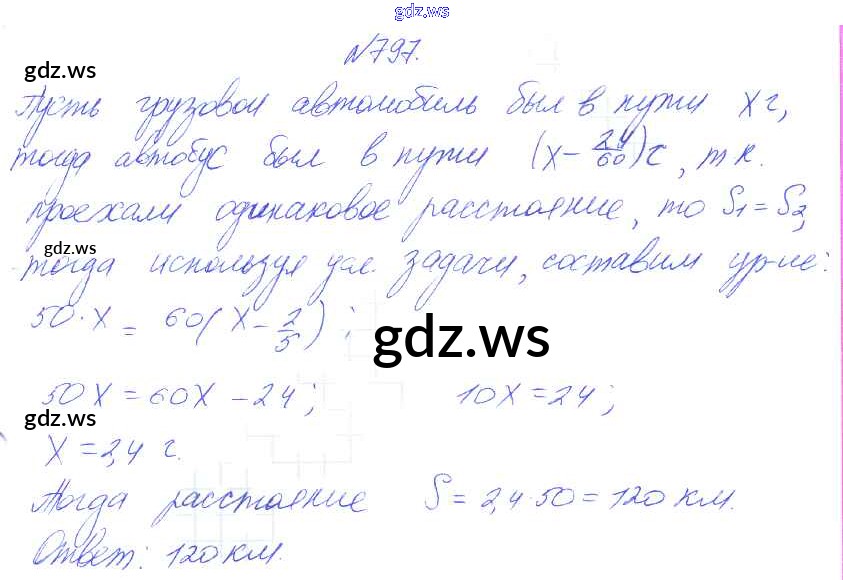 gdz.ws
№797.
gdz.ws
Пусть грузовой автомобиль был в пути x г,
тогда автобус был в пути (x - 24/60) г, т к.
проехали одинаковое расстояние, то S₁ = S₂,
gdz.ws
тогда используя усл. задачи, составим ур-ие:
50·x = 60(x - 2/5);
gdz.ws
50x = 60x - 24; 10x = 24;
gdz.ws
x = 2,4 г.
Тогда расстояние S = 2,4·50 = 120 км.
Ответ: 120 км.